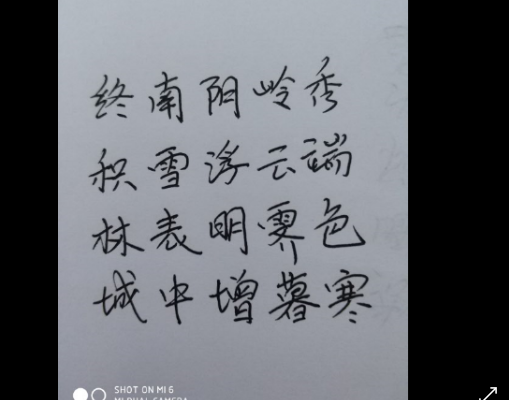 终南阴岭秀
积雪浮云端
林表明霁色
城中增暮寒
SHOT ON MI 6
MI DUAL CAMERA